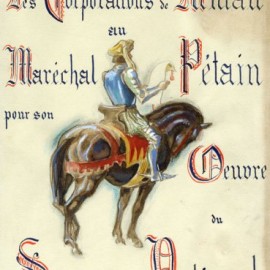 Les Corporations de
au
Maréchal Pétain
pour son
Oeuvre
du